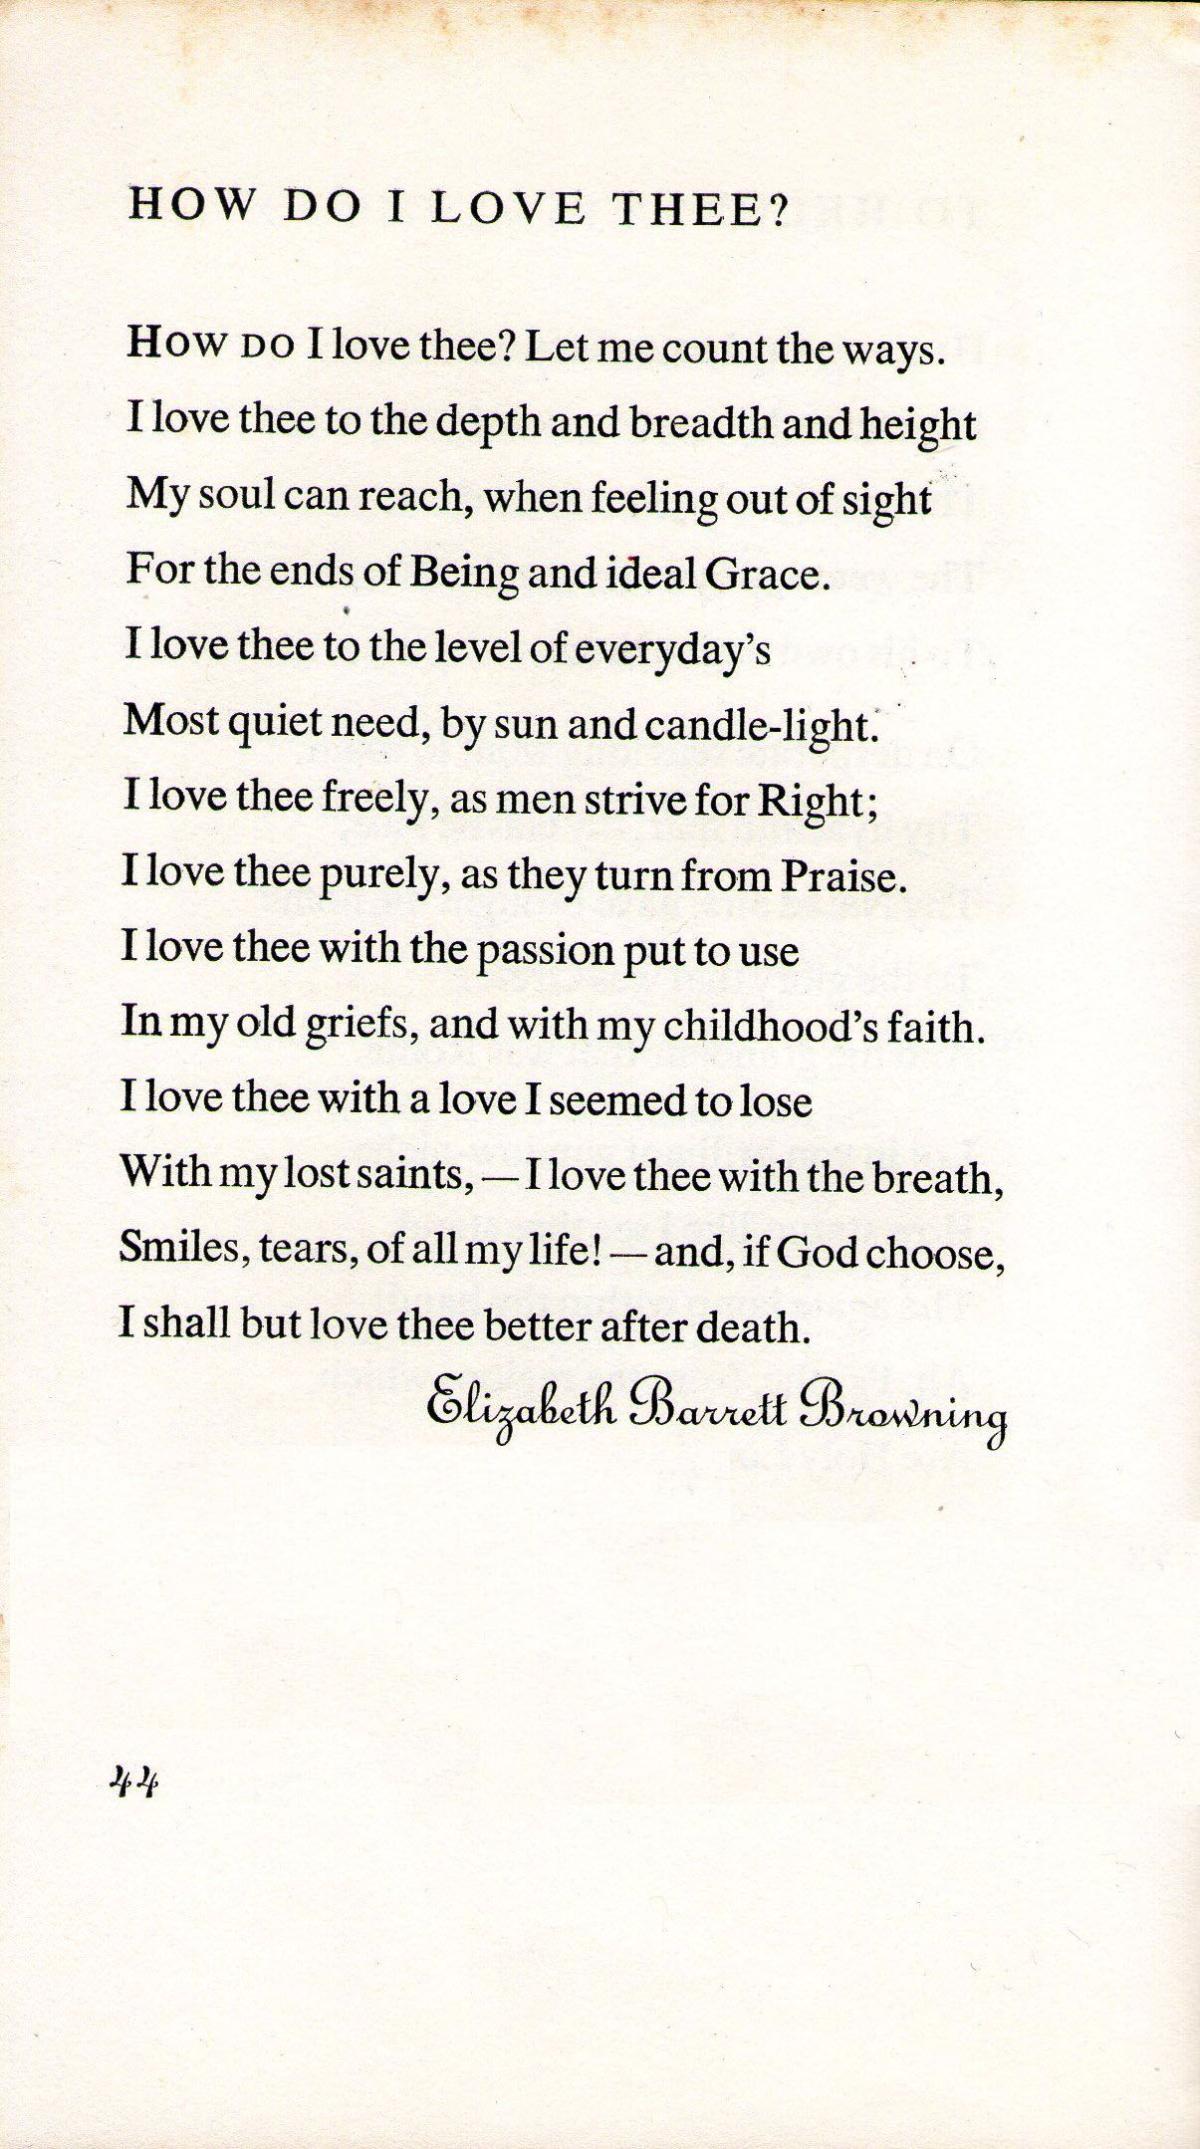 HOW DO I LOVE THEE?
HOW DO I love thee? Let me count the ways.
I love thee to the depth and breadth and height
My soul can reach, when feeling out of sight
For the ends of Being and ideal Grace.
I love thee to the level of everyday's
Most quiet need, by sun and candle-light.
I love thee freely, as men strive for Right;
I love thee purely, as they turn from Praise.
I love thee with the passion put to use
In my old griefs, and with my childhood's faith.
I love thee with a love I seemed to lose
With my lost saints, — I love thee with the breath,
Smiles, tears, of all my life! — and, if God choose,
I shall but love thee better after death.
Elizabeth Barrett Browning
44